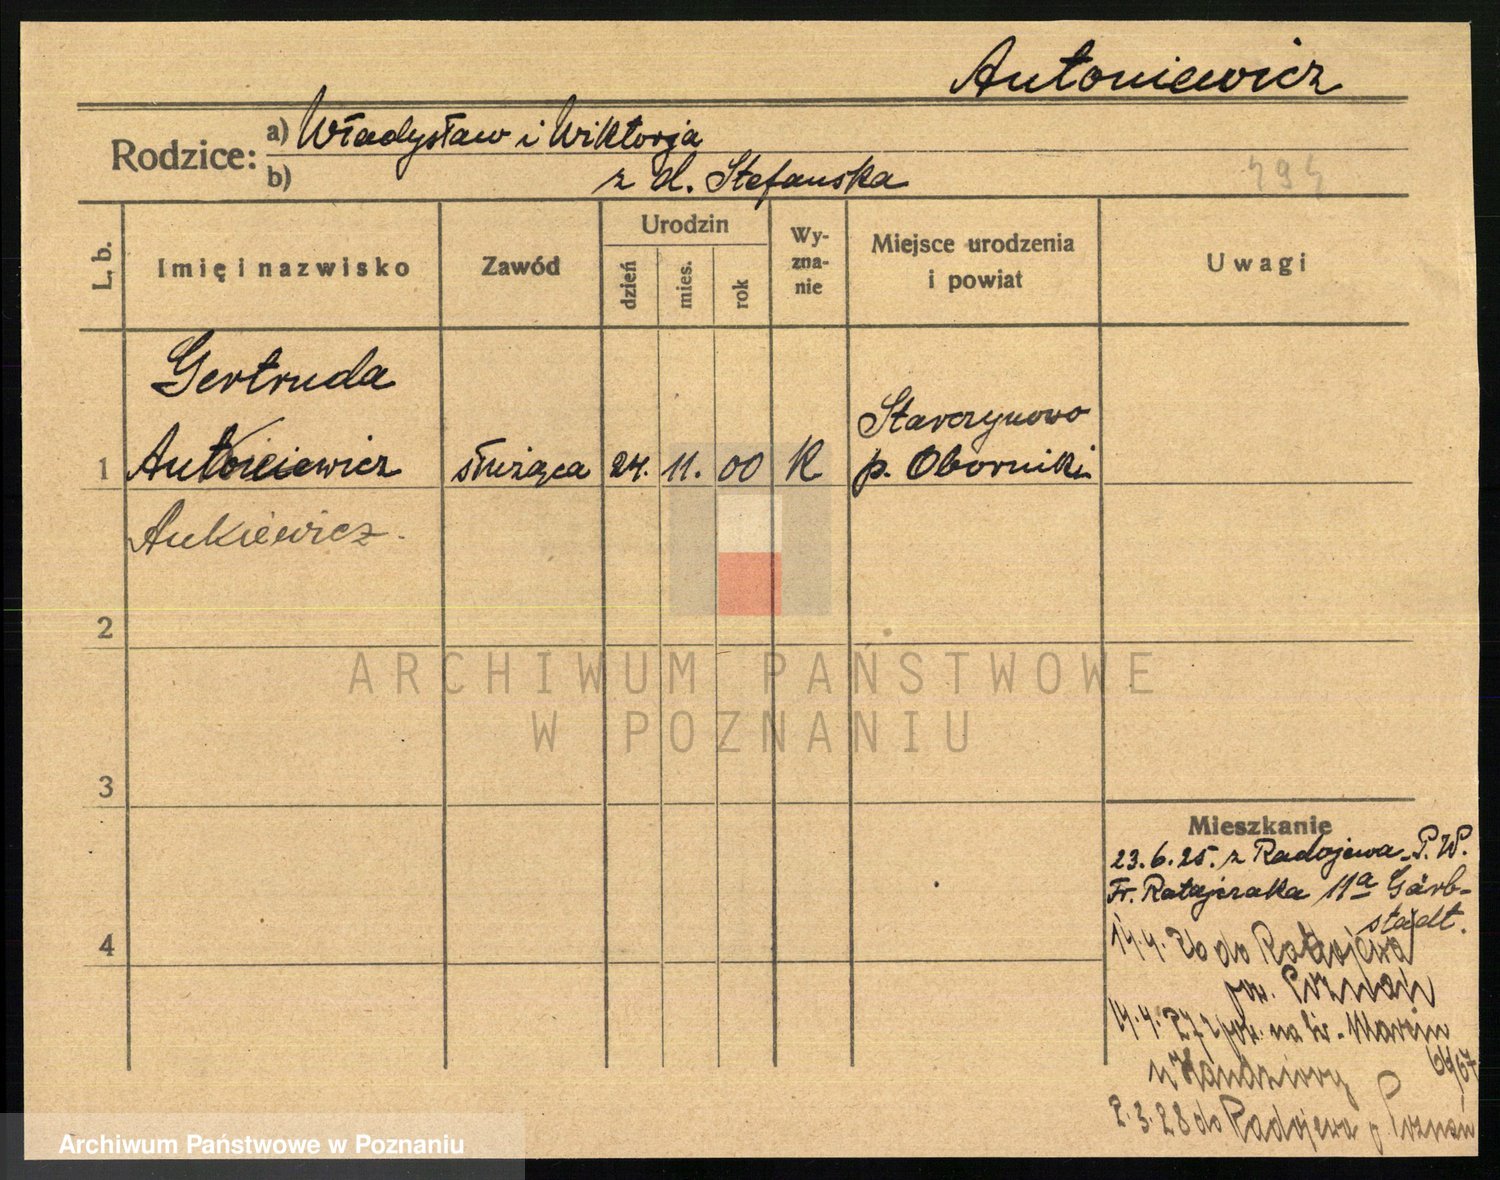 Antoniewicz
Rodzice: a) Władysław i Wiktorja
b) z d. Stefańska
494
L. b. Imię i nazwisko Zawód Urodzin dzień mies. rok Wy-zna-nie Miejsce urodzenia i powiat Uwagi
Gertruda
Starczynowo
1 Antoniewicz służąca 24. 11. 00 K p. Oborniki
Ankiewicz.
2
ARCHIWUM PAŃSTWOWE
W POZNANIU
3
Mieszkanie
23.6.25. z Radojewa P.W.
Fr. Ratajczaka 11a Gärb-
stadt.
4
14.4.26 do Radojewa
pow. Poznań
14.4.27 z pow. na Św. Marcin
66/67
u Handziory
2.3.28 do Radojewa p Poznań
Archiwum Państwowe w Poznaniu